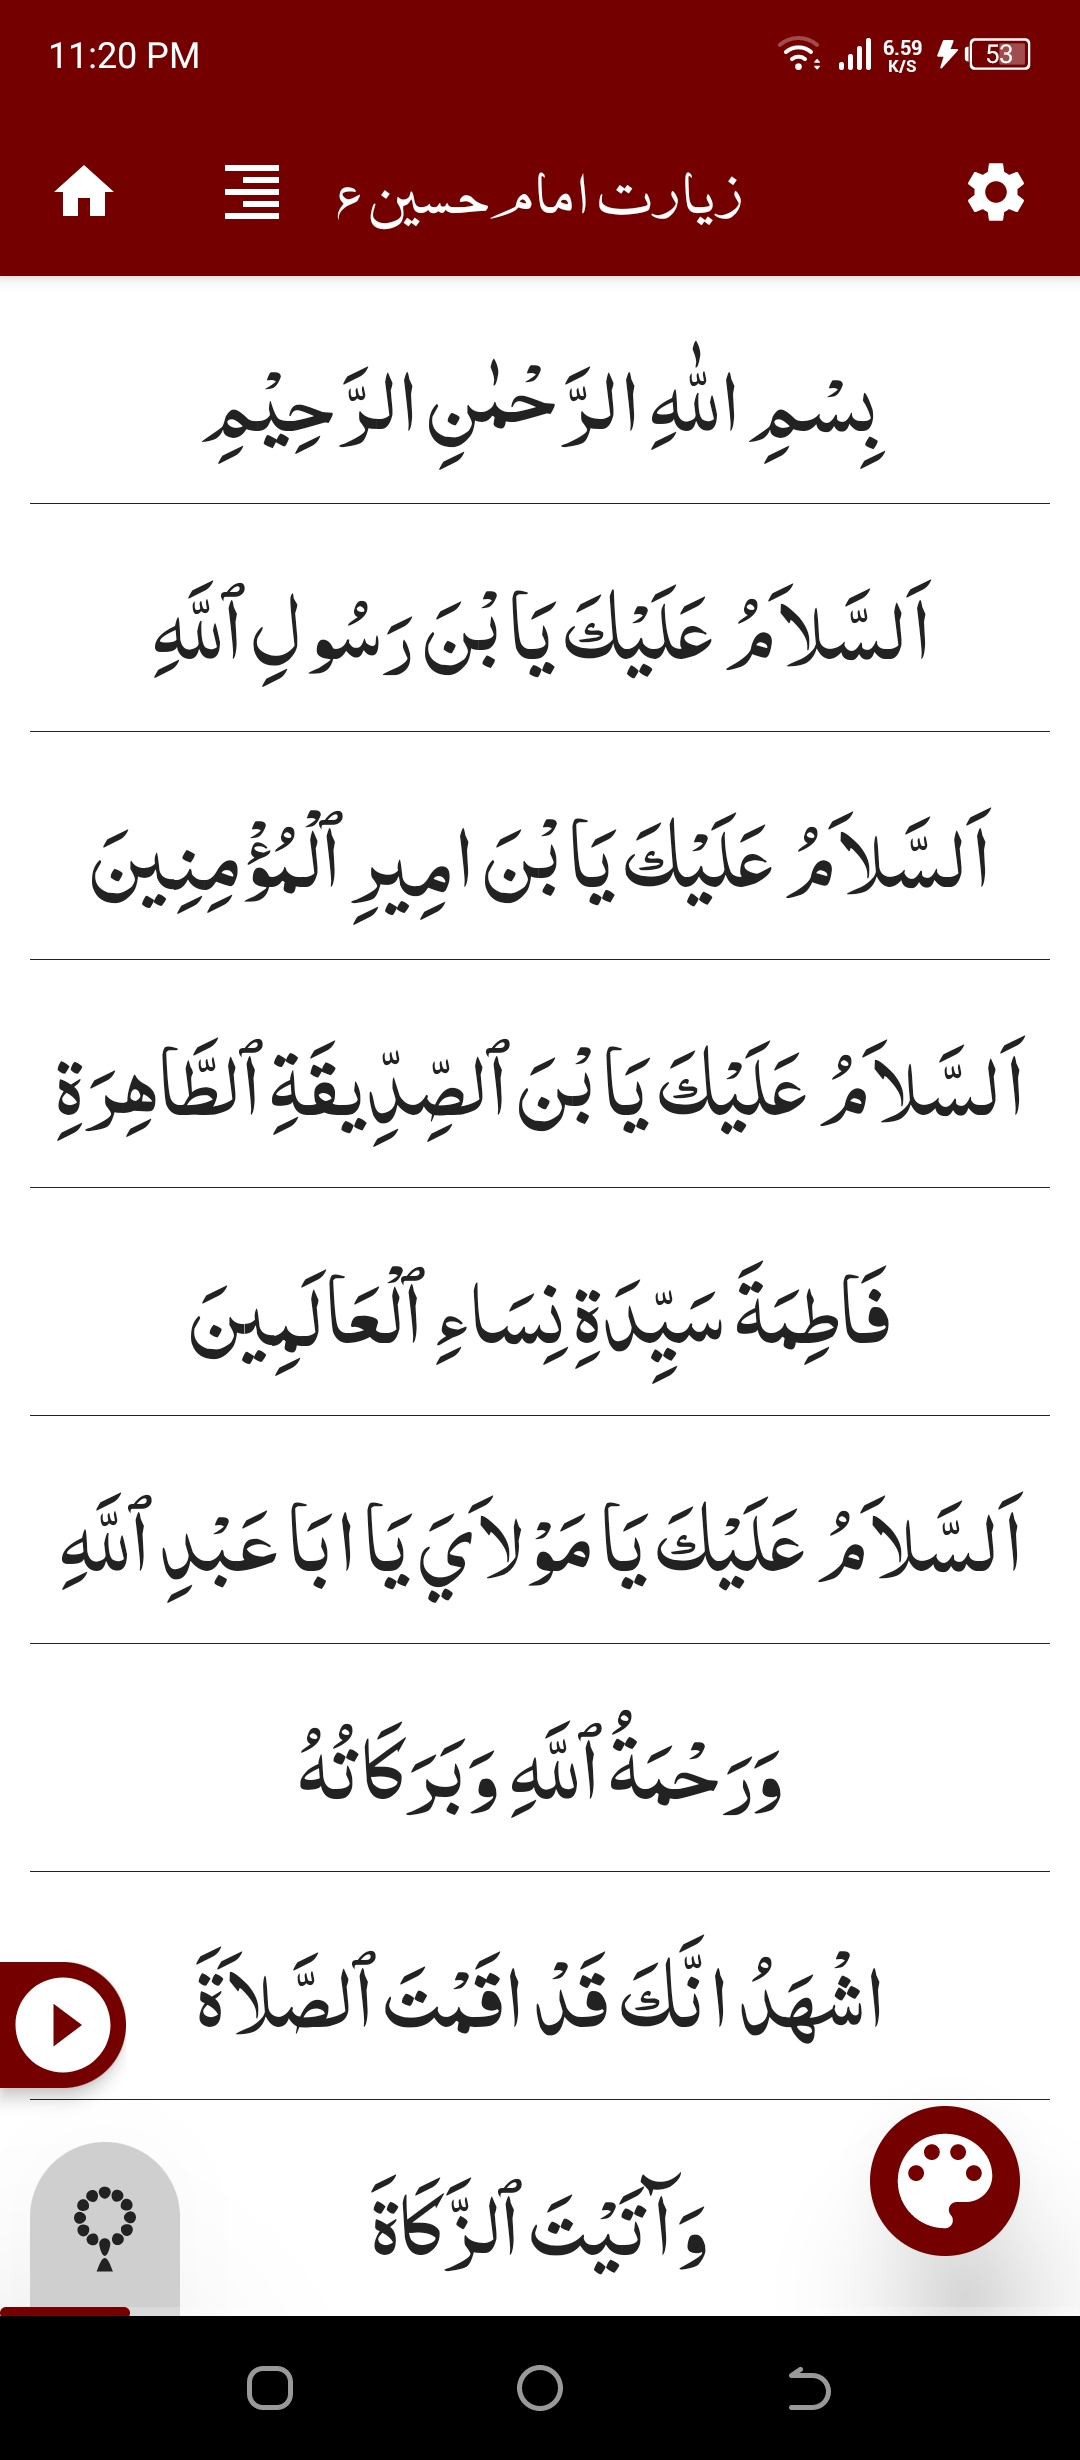 11:20 PM
6.59
K/S
53
زیارت امام حسین ع
بِسْمِ اللّٰهِ الرَّحْمٰنِ الرَّحِيْمِ
اَلسَّلاَمُ عَلَيْكَ يَا بْنَ رَسُولِ ٱللَّهِ
اَلسَّلاَمُ عَلَيْكَ يَا بْنَ امِيرِ ٱلْمُؤْمِنِينَ
اَلسَّلاَمُ عَلَيْكَ يَا بْنَ ٱلصِّدِّيقَةِ ٱلطَّاهِرَةِ
فَاطِمَةَ سَيِّدَةِ نِسَاءِ ٱلْعَالَمِينَ
اَلسَّلاَمُ عَلَيْكَ يَا مَوْلاَيَ يَا ابَا عَبْدِ ٱللَّهِ
وَرَحْمَةُ ٱللَّهِ وَبَرَكَاتُهُ
اشْهَدُ انَّكَ قَدْ اقَمْتَ ٱلصَّلاَةَ
وَآتَيْتَ ٱلزَّكَاةَ